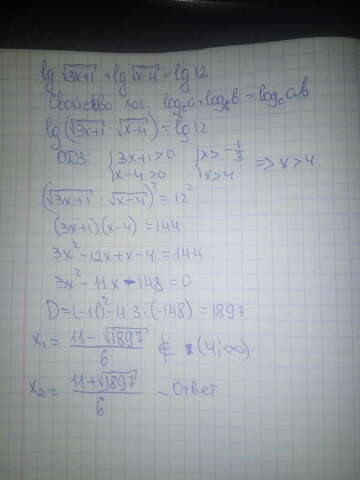 lg √3x+1 + lg √x-4 = lg 12
Свойство лог. log_c a + log_c b = log_c ab
lg (√3x+1 · √x-4) = lg 12
ОДЗ: { 3x+1>0 { x>-1/3
x-4>0 x>4 => x>4
(√3x+1 · √x-4)² = 12²
(3x+1)(x-4) = 144
3x² - 12x + x - 4 = 144
3x² - 11x - 148 = 0
D = (-11)² - 4·3·(-148) = 1897
x₁ = (11 - √1897)/6 ∉ (4; ∞)
x₂ = (11 + √1897)/6 - Ответ